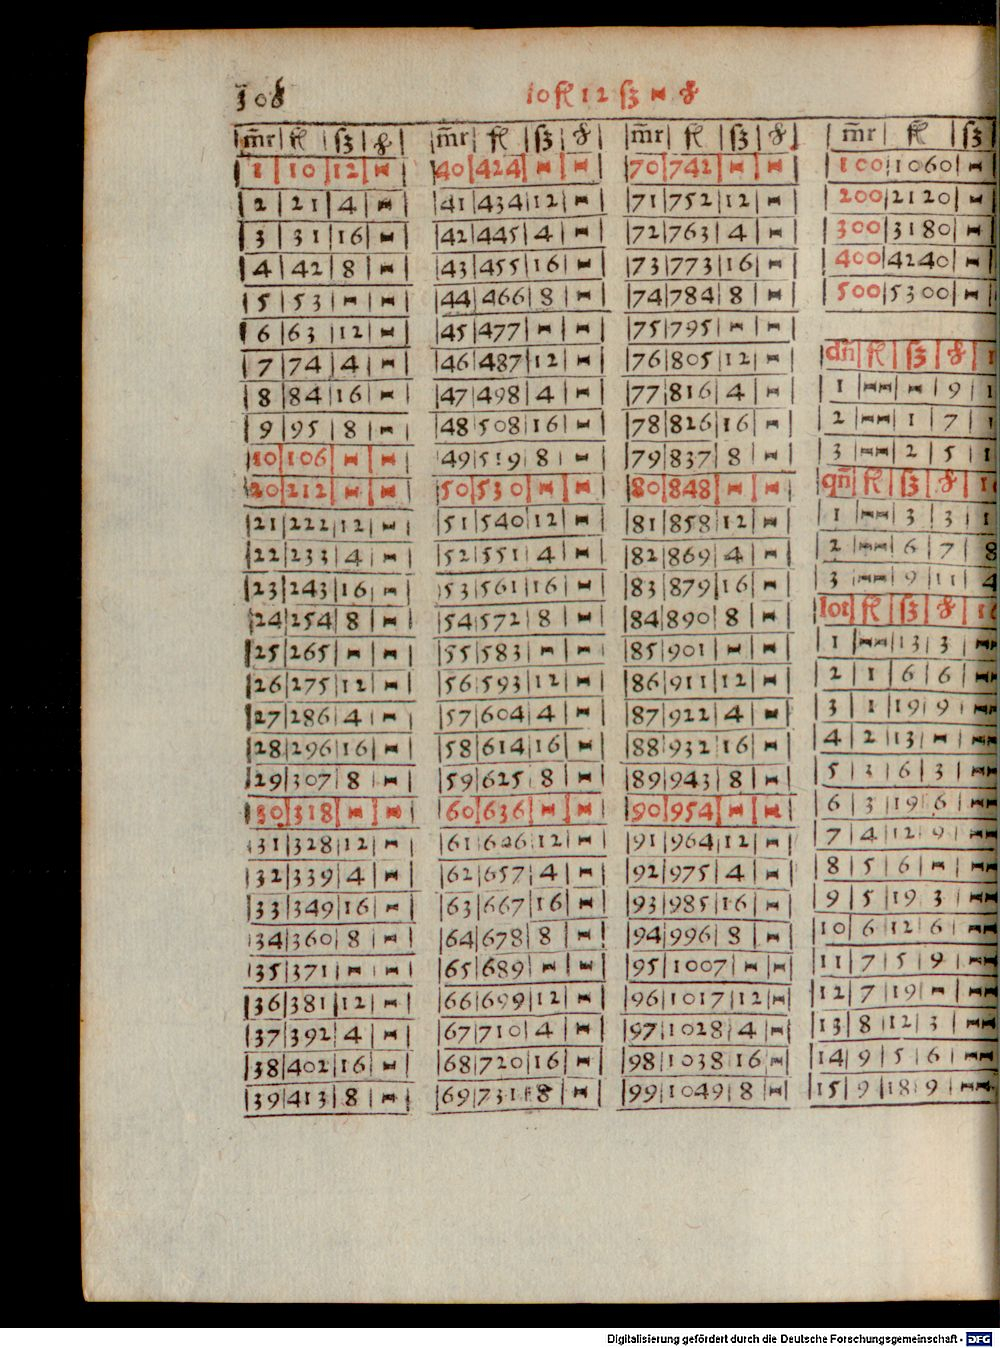 308
10 fl 12 ſʒ ⑅ ₰
m̃r fl ſʒ ₰
1 10 12 -
2 21 4 -
3 31 16 -
4 42 8 -
5 53 - -
6 63 12 -
7 74 4 -
8 84 16 -
9 95 8 -
10 106 - -
20 212 - -
21 222 12 -
22 233 4 -
23 243 16 -
24 254 8 -
25 265 - -
26 275 12 -
27 286 4 -
28 296 16 -
29 307 8 -
30 318 - -
31 328 12 -
32 339 4 -
33 349 16 -
34 360 8 -
35 371 - -
36 381 12 -
37 392 4 -
38 402 16 -
39 413 8 -
m̃r fl ſʒ ₰
40 424 - -
41 434 12 -
42 445 4 -
43 455 16 -
44 466 8 -
45 477 - -
46 487 12 -
47 498 4 -
48 508 16 -
49 519 8 -
50 530 - -
51 540 12 -
52 551 4 -
53 561 16 -
54 572 8 -
55 583 - -
56 593 12 -
57 604 4 -
58 614 16 -
59 625 8 -
60 636 - -
61 646 12 -
62 657 4 -
63 667 16 -
64 678 8 -
65 689 - -
66 699 12 -
67 710 4 -
68 720 16 -
69 731 8 -
m̃r fl ſʒ ₰
70 742 - -
71 752 12 -
72 763 4 -
73 773 16 -
74 784 8 -
75 795 - -
76 805 12 -
77 816 4 -
78 826 16 -
79 837 8 -
80 848 - -
81 858 12 -
82 869 4 -
83 879 16 -
84 890 8 -
85 901 - -
86 911 12 -
87 922 4 -
88 932 16 -
89 943 8 -
90 954 - -
91 964 12 -
92 975 4 -
93 985 16 -
94 996 8 -
95 1007 - -
96 1017 12 -
97 1028 4 -
98 1038 16 -
99 1049 8 -
m̃r fl ſʒ
100 1060 -
200 2120 -
300 3180 -
400 4240 -
500 5300 -
dñ fl ſʒ ₰ 1
1 -- - 9 1
2 -- 1 7 1
3 -- 2 5 1
qñ fl ſʒ ₰ 1
1 -- 3 3 1
2 -- 6 7 8
3 -- 9 11 4
lot fl ſʒ ₰ 16
1 -- 13 3 --
2 1 6 6 --
3 1 19 9 --
4 2 13 - --
5 3 6 3 --
6 3 19 6 --
7 4 12 9 --
8 5 6 - --
9 5 19 3 --
10 6 12 6 --
11 7 5 9 --
12 7 19 - --
13 8 12 3 --
14 9 5 6 --
15 9 18 9 --
Digitalisierung gefördert durch die Deutsche Forschungsgemeinschaft - DFG